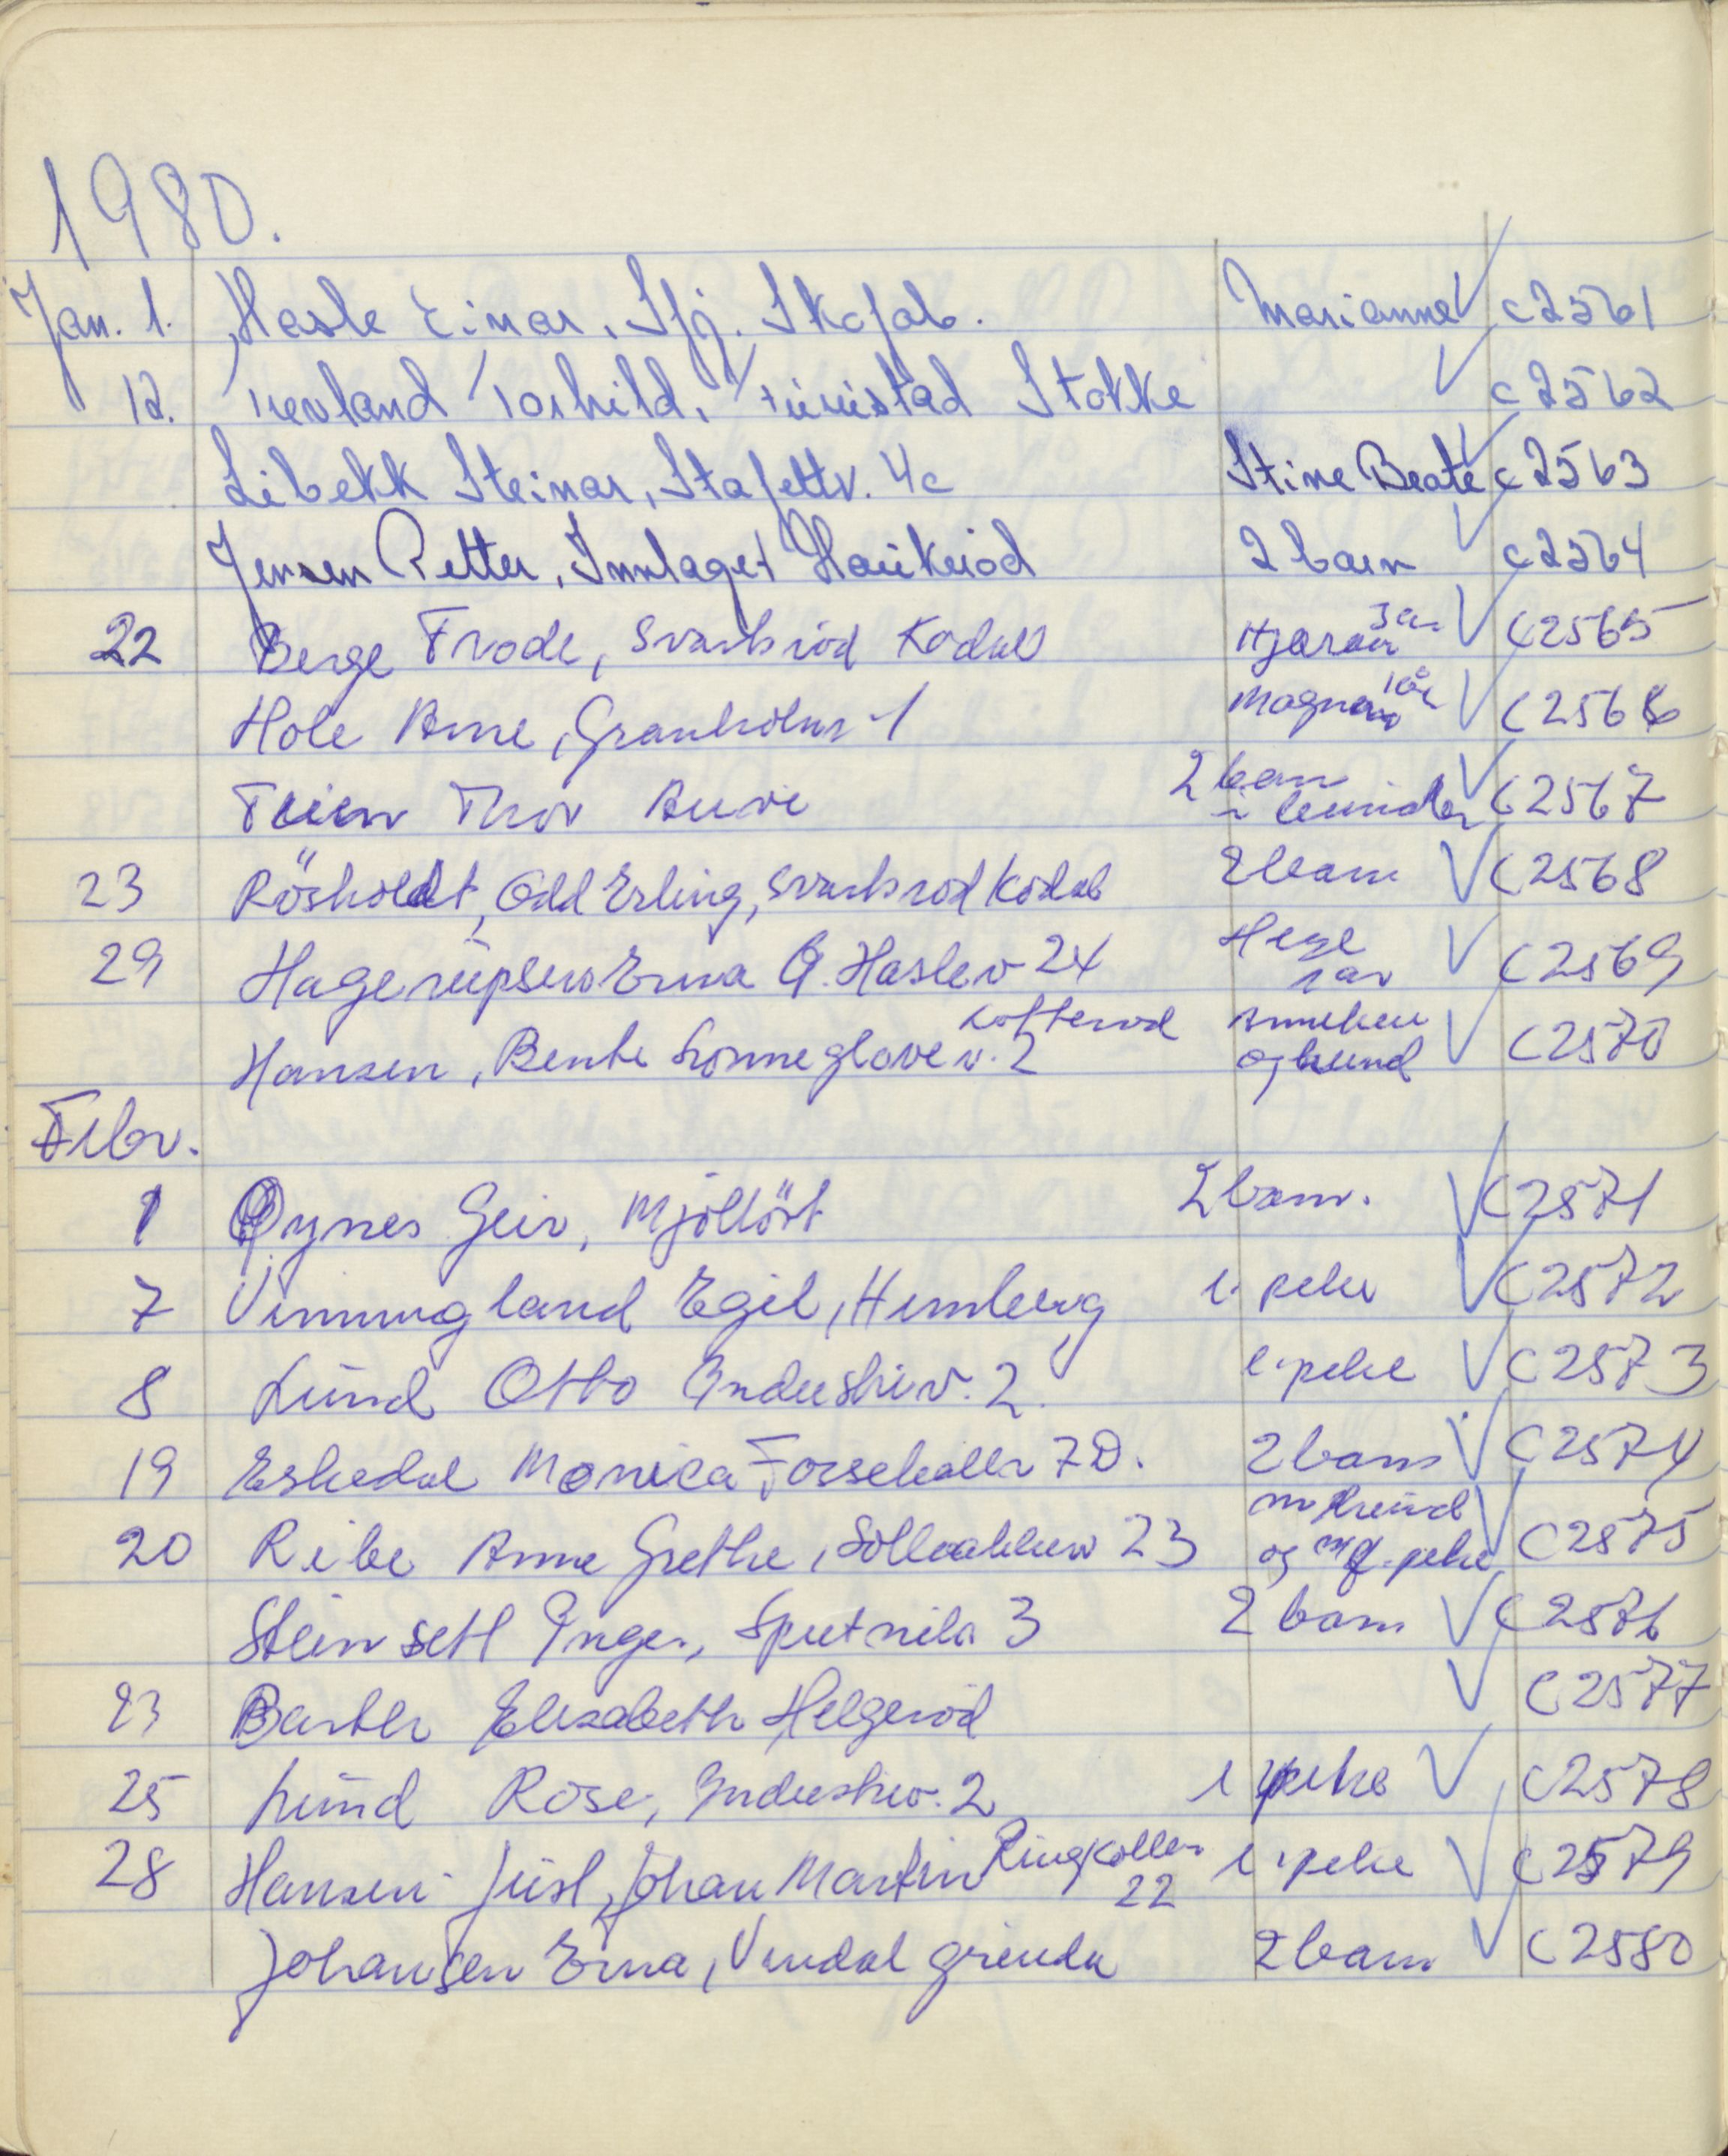 1980.
Jan. 1. Hasle Einar, Sfj. Skofab. Marianne c2561
12. Torhild, Stokke c2562
Libekk Steinar, Stafettv. 4c Stine Beate c2563
Jensen Petter, Innlaget Haukeröd 2 barn c2564
22 Berge Frode, Svartsröd Kodal 3 år C2565
Hole Arne, Granholmv 1 Magnus C2566
Teien Thor Auve 2 barn C2567
23 Rösholdt, Odd Erling, Svartsrod Kodal 2 barn C2568
29 Erna Q. Haslev 24 Hege C2569
Hansen, Bente v. 2 Anneken og hund C2570
Febr.
1 Øynes Geir, Mjölløst 2 barn. C2571
7 Vinningland Egil, Himberg 1. peke C2572
8 Lund Otto Industriv. 2. 1. peke C2573
19 Eskedal Monica 7D. 2 barn C2574
20 Ribe Anne Grethe, Solbakken 23 m hund og peke C2575
Steinsett Inger, Sputnikv 3 2 barn C2576
23 Elisabeth Helgeröd C2577
25 Lund Rose, Industriv. 2 1 peke C2578
28 Hansen Just, Johan Martin Ringkollen 22 1 peke C2579
Johansen Erna, Vindal grenda 2 barn C2580